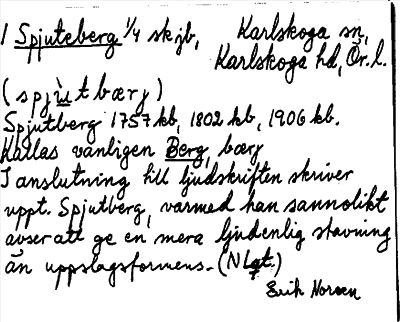 1 Spjuteberg 1/4 skjb, Karlskoga sn,
Karlskoga hd, Ör. l.
(spjùtbærj)
Spjutberg 1757 kb, 1802 kb, 1906 kb.
Kallas vanligen Berg, bærj
I anslutning till ljudskriften skriver
uppt. Spjutberg, varmed han sannolikt
avser att ge en mera ljudenlig stavning
än uppslagsformens. (N Lgt.)
Erik Noreen